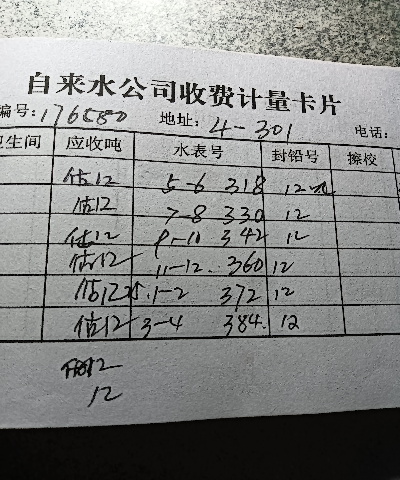 自来水公司收费计量卡片
编号:176580 地址: 4-301 电话:
卫生间 应收吨 水表号 封铅号 擦校
估12 5-6 318 12
估12 7-8 330 12
估12 9-10 342 12
估12 11-12. 360 12
估12 25.1-2 372 12
估12 3-4 384. 12
12
12